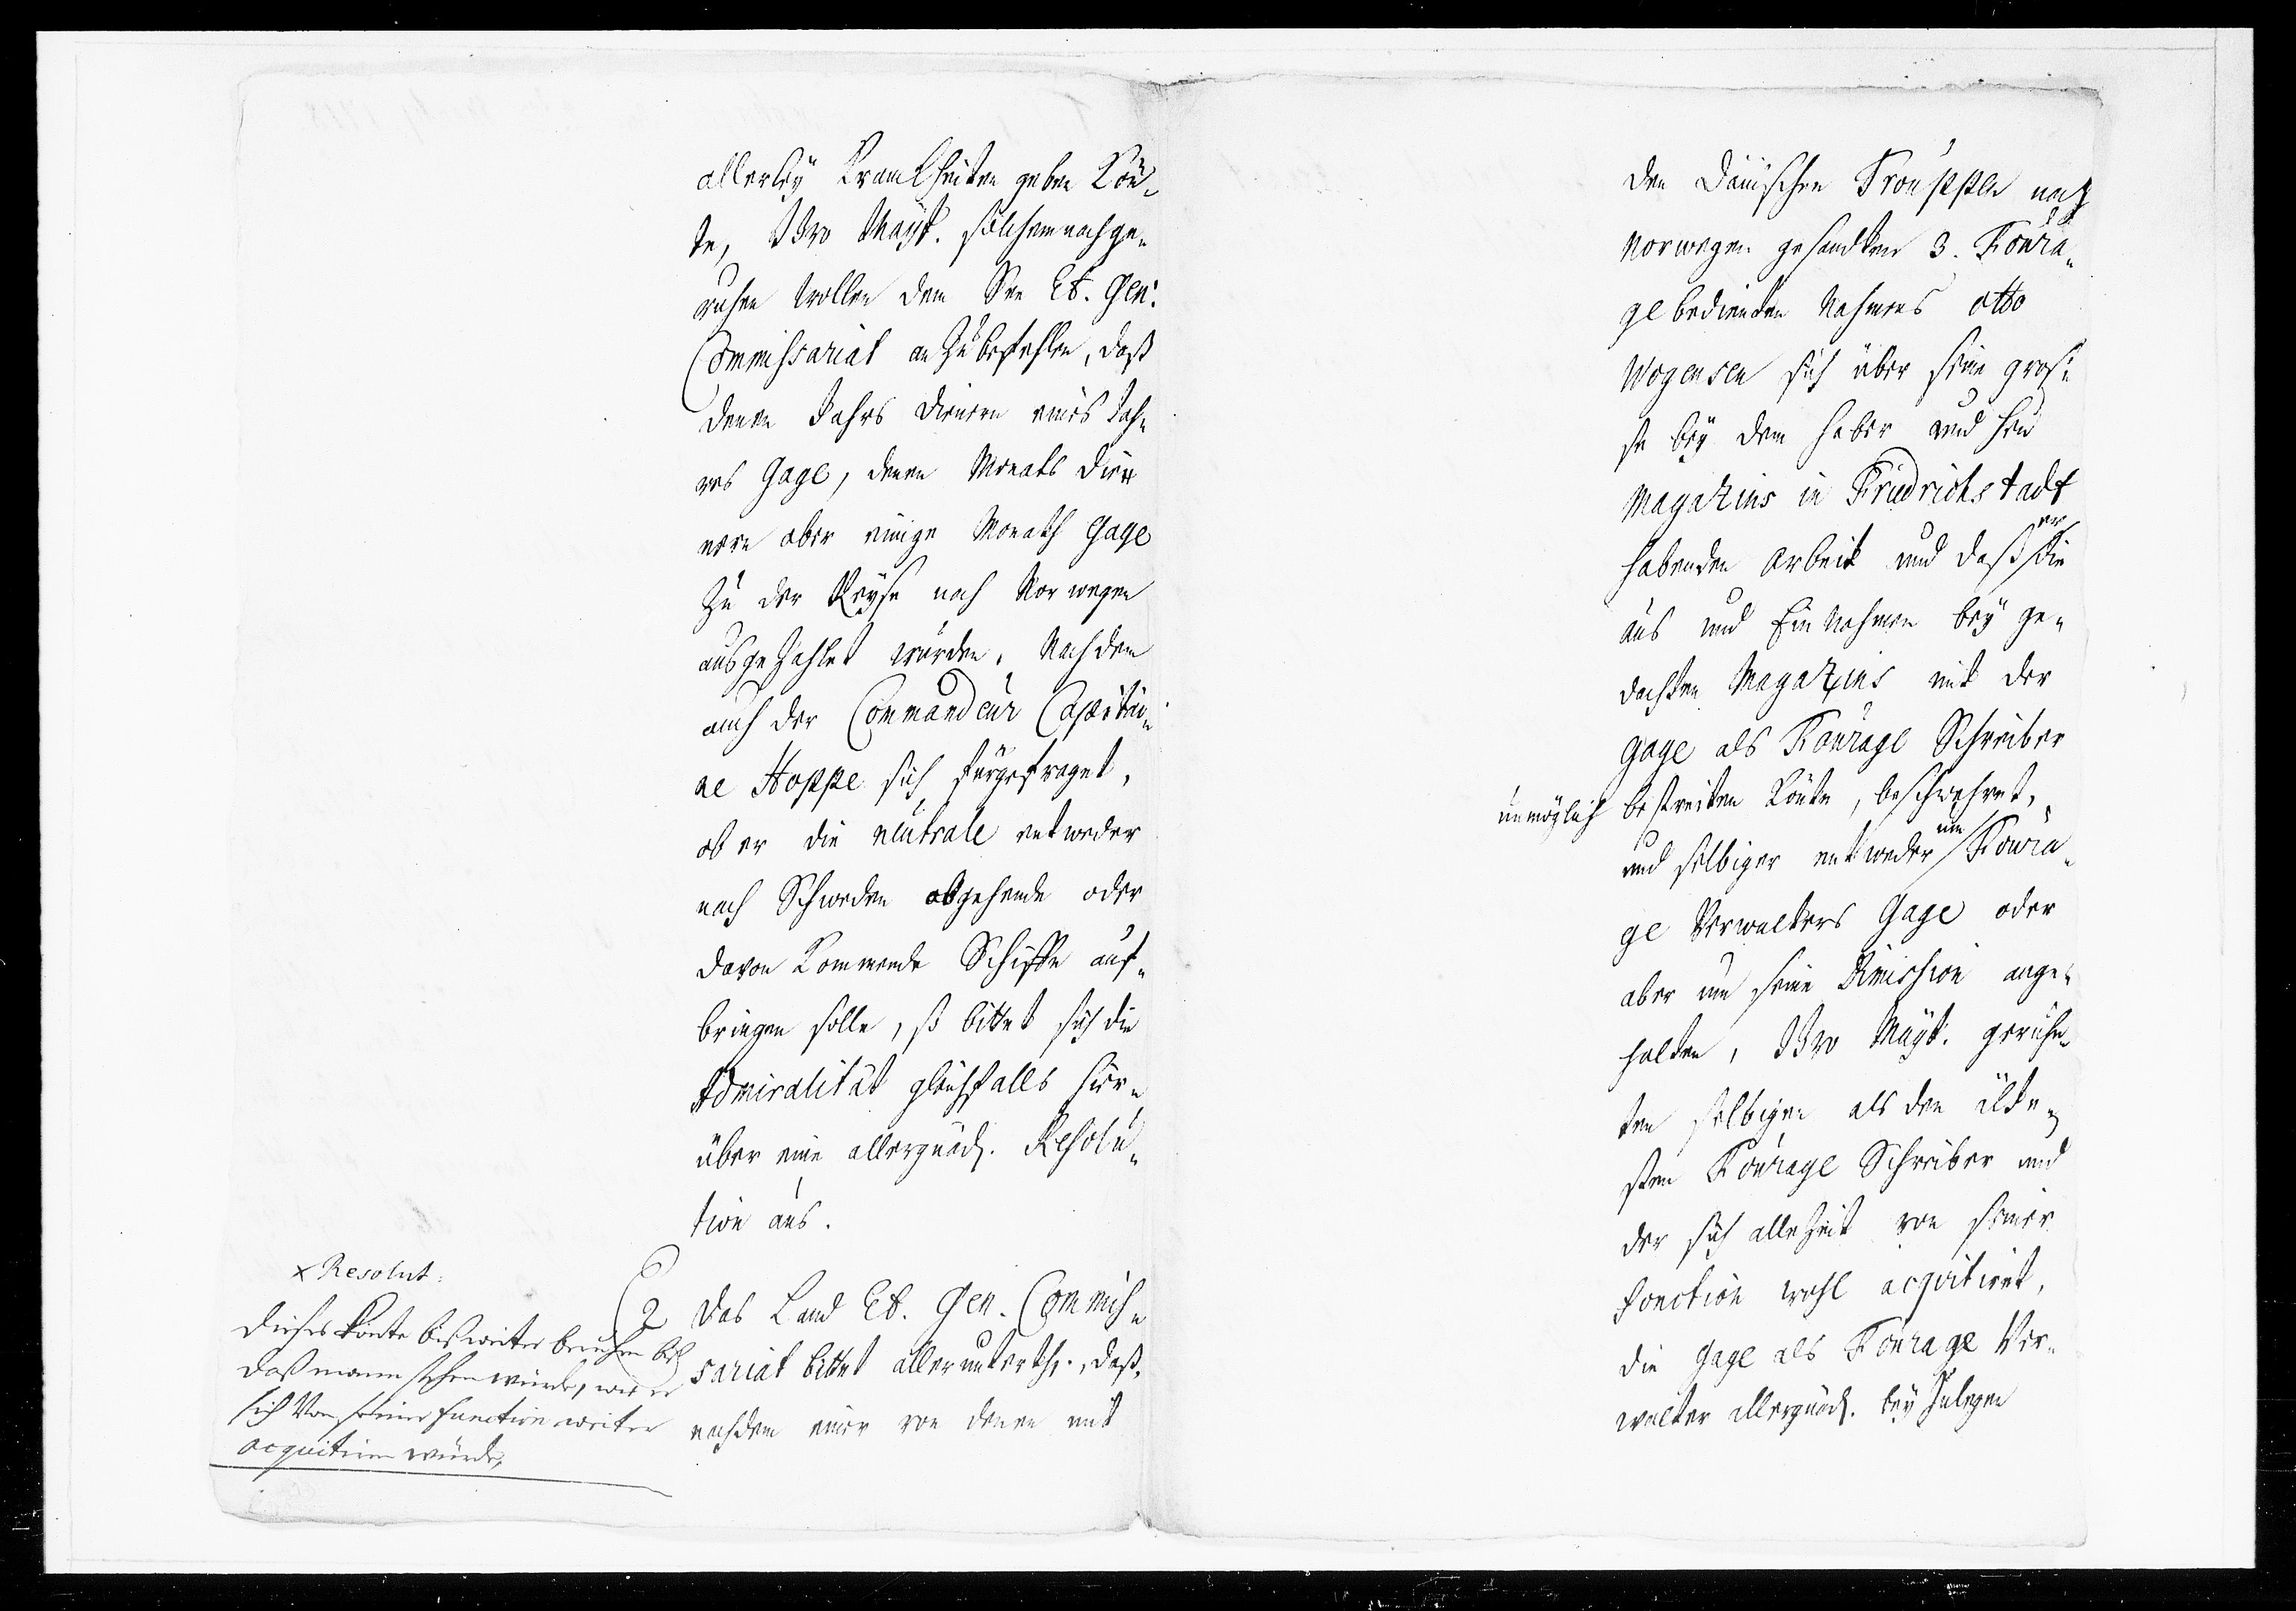 allerley Kranckheiten geben kön-
te, Ihro Mayt. solchemnach ge-
ruhen wollen dem See Et. Gen:
Commissariat anzubefehlen, daß
denen Jahrs dienern eines Jah-
res Gage, denen Monats die-
nern aber einige Monath Gage
zu der Reyse nach Norwegen
ausgezahlet würden. Nachdem
auch der Commandeur Capitai-
ne Hoppe sich fürgefraget,
ob er die neutrale entweder
nach Schweden abgehende oder
davon kommende Schiffe auf-
bringen solle, so bittet sich die
Admiralität gleichfalls hier-
über eine allergnäd. Resolu-
tion aus.
2 Das Land Et. Gen. Commis-
sariat bittet allerunterth., daß,
nachdem einer von denen mit
x Resolut:
Dieses könte bißweiter beruhen biß
daß mann sehen würde, wie er
sich Von seiner function weiter
acquitiren würde,
den Dänischen Trouppen nach
Norwegen gesandten 3. Foura-
gebedienten Nahmens Otto
Wogensen sich über seine gros-
se bey dem Haber und Heu
Magazins in Friedrichstadt
habenden Arbeit und daß er die
Aus und Einnahmen bey ge-
dachten Magazins mit der
Gage als Fourage Schreiber
unmöglich bestreiten könte, beschwehret,
und selbiger entweder um Foura-
ge Verwalters Gage oder
aber um seine Dimission ange-
halten, Ihro Mayt. geruhe-
ten selbigen als den älte-
sten Fourage Schreiber und
der sich allezeit von seiner
Fonction wohl acquitiret,
die Gage als Fourage Ver-
walter allergnäd. beyzulegen